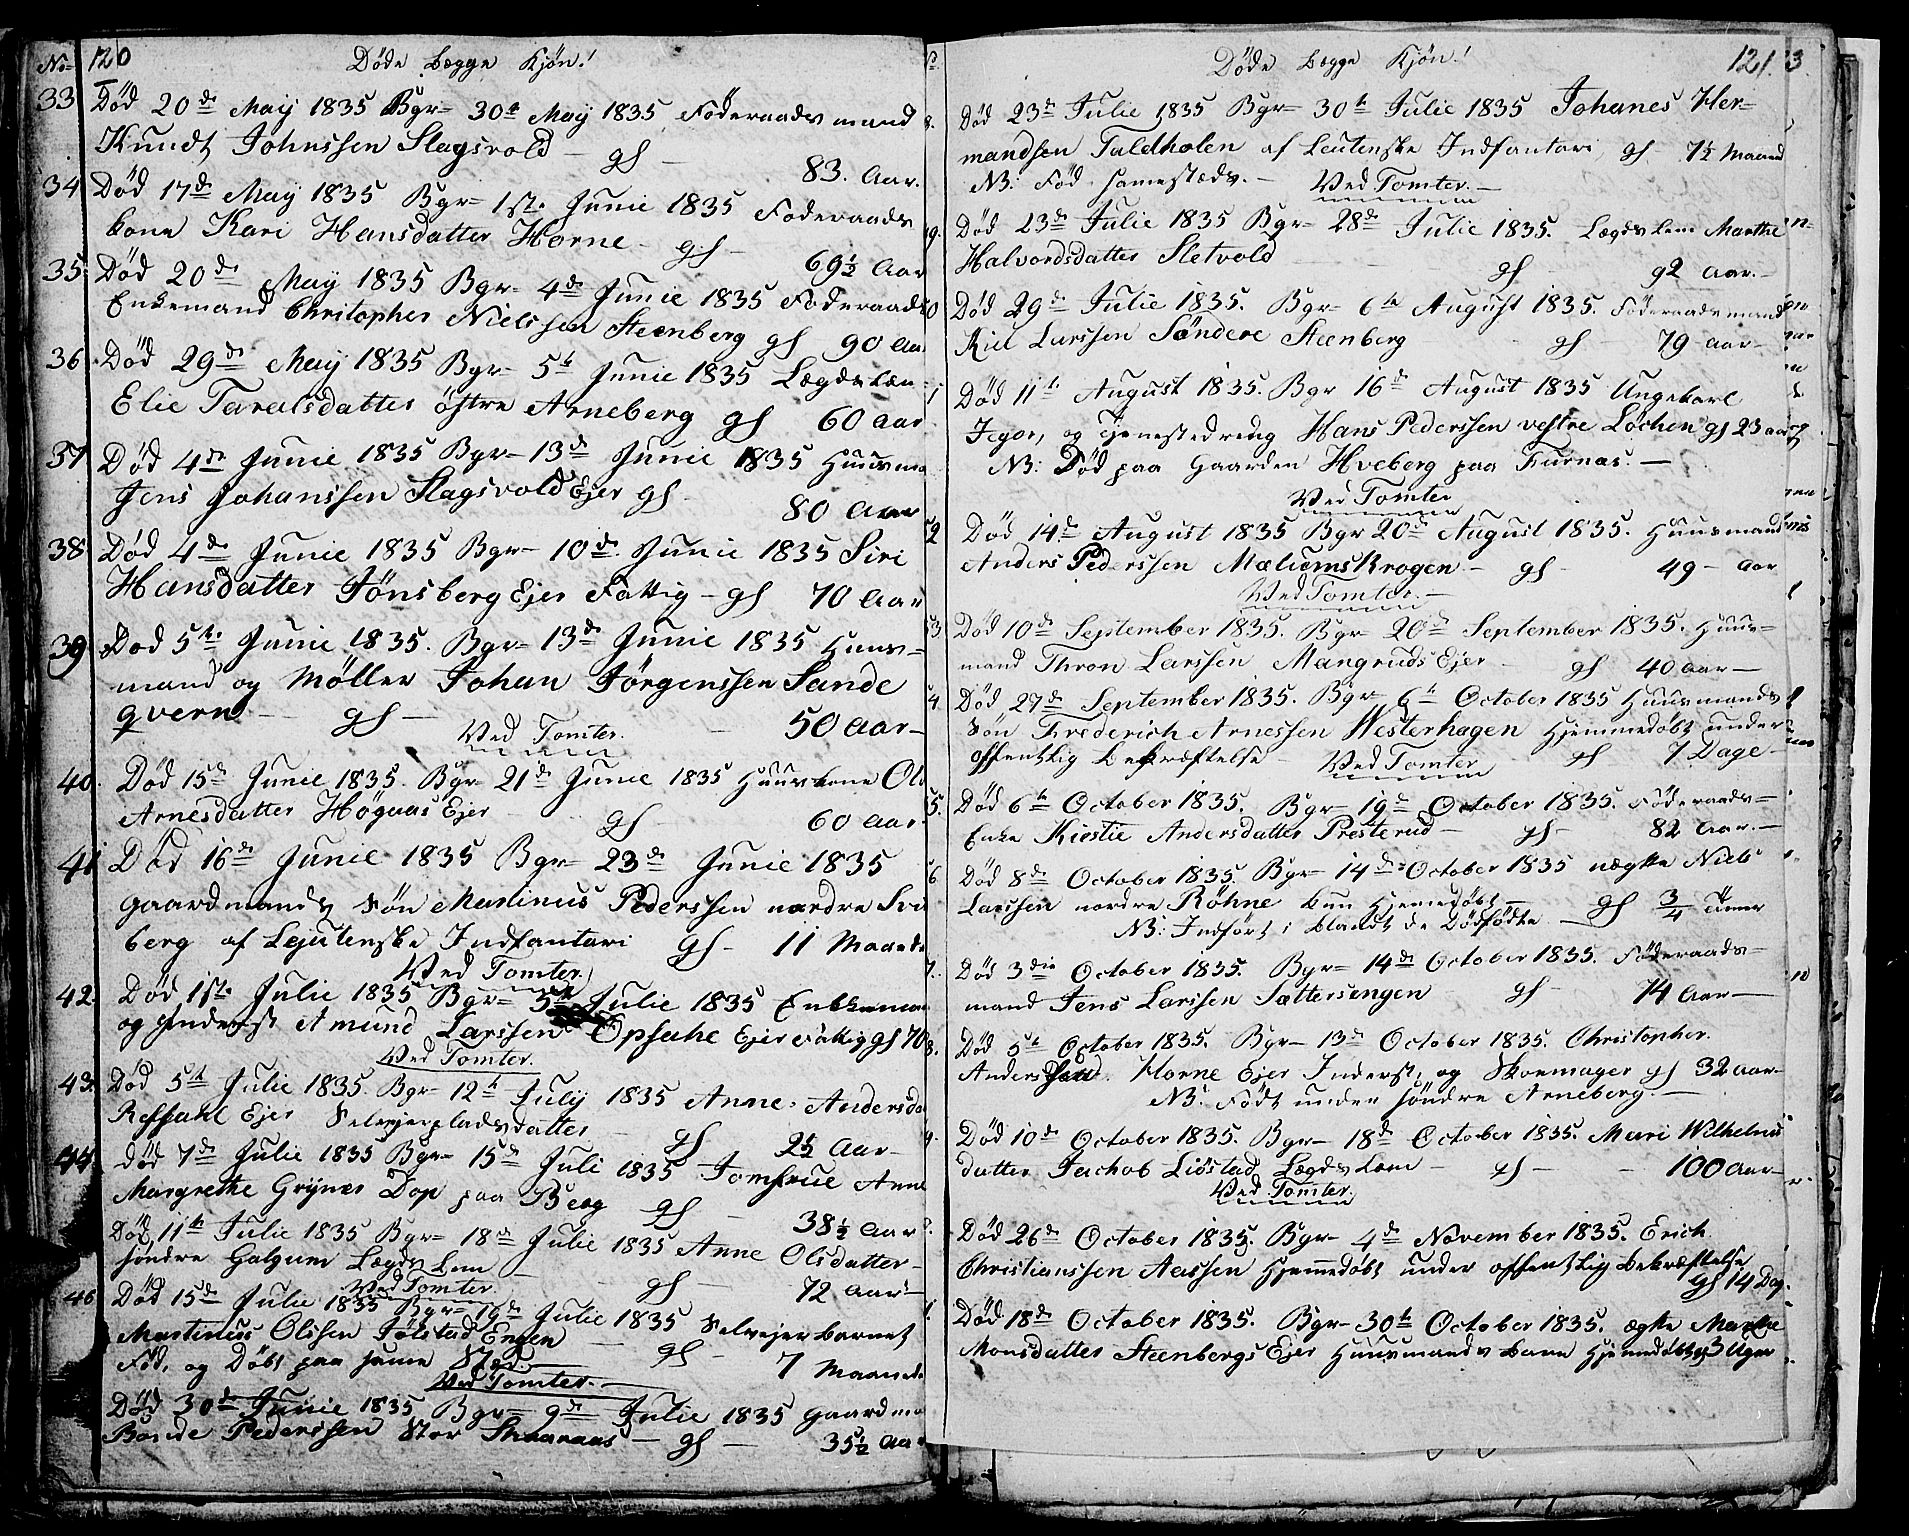 No 120 Døde begge Kjøn!
33 Død 20de May 1835 Bgr= 30te May 1835 Föderaads mand
Knudt Johnssen Slagsvold — gl — 83. Aar.
34 Død 17de May 1835 Bgr= 1ste Junie 1835 Föderaads
kone Kari Hansdatter Horne — gl — 69½ Aar
35 Død 20de May 1835 Bgr= 4de Junie 1835 Föderaads
Enkemand Christopher Nielssen Steenberg gl 90 Aa
36 Død 29de May 1835 Bgr= 5te Junie 1835 Lægdslem
Elie Taralsdatter östre Arneberg gl 60 Aar
37 Død 4de Junie 1835 Bgr= 13de Junie 1835 Huusma
Jens Johanssen Slagsvold Ejer gl — 80 Aar
38 Død 4de Junie 1835 Bgr= 10de Junie 1835 Siri
Hansdatter Jönsberg Ejer Fattig — gl 70 Aar
39 Død 5te Junie 1835. Bgr= 13de Junie 1835 Huus=
mand og Möller Johan Jörgenssen Sande
qvern — gl — 50 Aar—
Ved Tomter.
40. Død 15de Junie 1835. Bgr= 21de Junie 1835 Huuskone Ol
Arnesdatter Högaas Ejer — gl — 60 Aar
41 Død 16de Junie 1835 Bgr= 23de Junie 1835
Gaardmands Søn Martinus Pederssen nordre Svi
berg af Lejutenske Indfantari gl — 11 Maande
Ved Tomter.
42. Død 1ste Julie 1835 Bgr= 5te Julie 1835 Enkkeman
og Inderst Amund Larssen Opsahl Ejer Fattig gl 70
Ved Tomter.
43. Død 5te Julie 1835. Bgr= 12te July 1835 Anne Andersda
Ressahl Ejer Selvejerpladsdatter — gl 2½ Aar—
44. Død 7de Julie 1835 Bgr= 15de Juli 1835 Jomfrue Anne
Margrethe Grÿner Dop paa Berg gl — 38½ Aar
Død 11te Julie 1835 Bgr= 18de Julie 1835 Anne Olsdatter
söndre Galgum Lægdslem — gl — 72 Aar—
Ved Tomter
46 Død 15de Julie 1835 Bgr= 19de Julie 1835 Selvejer barnet
Martinus Olssen Jölstad Engen — gl — 7 Maande
Fød, og Døbt paa samme Sted.
Ved Tomter.—
Død 30te Junie 1835 Bgr= 9de Julie 1835 Gaardma
Bonde Pederssen Stor Skaaraas — gl — 35½ Aar
Døde begge Kjøn! 121. 3.
Død 23de Julie 1835 Bgr= 30te Julie 1835 Johanes Her=
mandsen Taldholen af Leutenske Indfantari, gl — 7½ Maand
NB: Fød samestæds.— Ved Tomter.—
Død 23de Julie 1835 Bgr= 28de Julie 1835. Lægdslem Marthe
Halvordsdatter Sletvold gl 92 Aar.—
Død 29de Julie 1835. Bgr= 6te August 1835. Föderaadsmand
Kiel Larssen Söndere Steenberg gl 79 Aar—
Død 11te August 1835. Bgr 16de August 1835 Ungekarl
Jegor, og Tjenestedreng Hans Pederssen vestre Löchen gl 23 aar
NB: Død paa Gaarden Hveberg paa Furnæs.—
Ved Tomter
Død 14de August 1835 Bgr 20de August 1835. Huusmand
Anders Pederssen Mælumskrogen — gl — 49 — Aar
Ved Tomter.—
Død 10de September 1835. Bgr 20de September 1835. Huus=
mand Thron Larssen Mangruds Ejer — gl 40 Aar—
Død 27de September 1835. Bgr= 6te October 1835 Huusmands
Søn Frederich Arnessen Westerhagen Hjemmedöbt under
offentlig bekræftelse — Ved Tomter gl 7 Dage —
Død 6te October 1835. Bgr= 19de October 1835. Föderaads=
Enke Kirstie Andersdatter Presterud — gl — 82 Aar.—
Død 8de October 1835 Bgr= 14de October 1835 uægte Niels
Larssen nordre Röhne kun Hjemedöbt — gl ¾ Timer
NB: Indført i blandt de Dödfödte —
Død 3die October 1835. Bgr= 14de October 1835. Föderaads=
mand Jens Larssen Sættersengen — gl — 74 Aar—
Død 5te October 1835. Bgr= 13de October 1835. Christopher.
Anders Horne Ejer Inderst, og Skomager gl 32 aar—
NB: Födt under söndre Arneberg.—
Død 10de October 1835. Bgr= 18de October 1835. Mari Wilhelms
datter Jachob Liöstad Lægdslem — gl — — 100 Aar—
Ved Tomter.
Død 26de October 1835. Bgr= 4de November 1835. Erich
Christianssen Aassen Hjemmedöbt under offentlig bekræftelse
gl 14 Dag.
Død 18de October 1835. Bgr= 30te October 1835. ægte Marthe
Monsdatter Steenbergs Ejer Huusmands barn Hjemedöbt gl 3 Uger